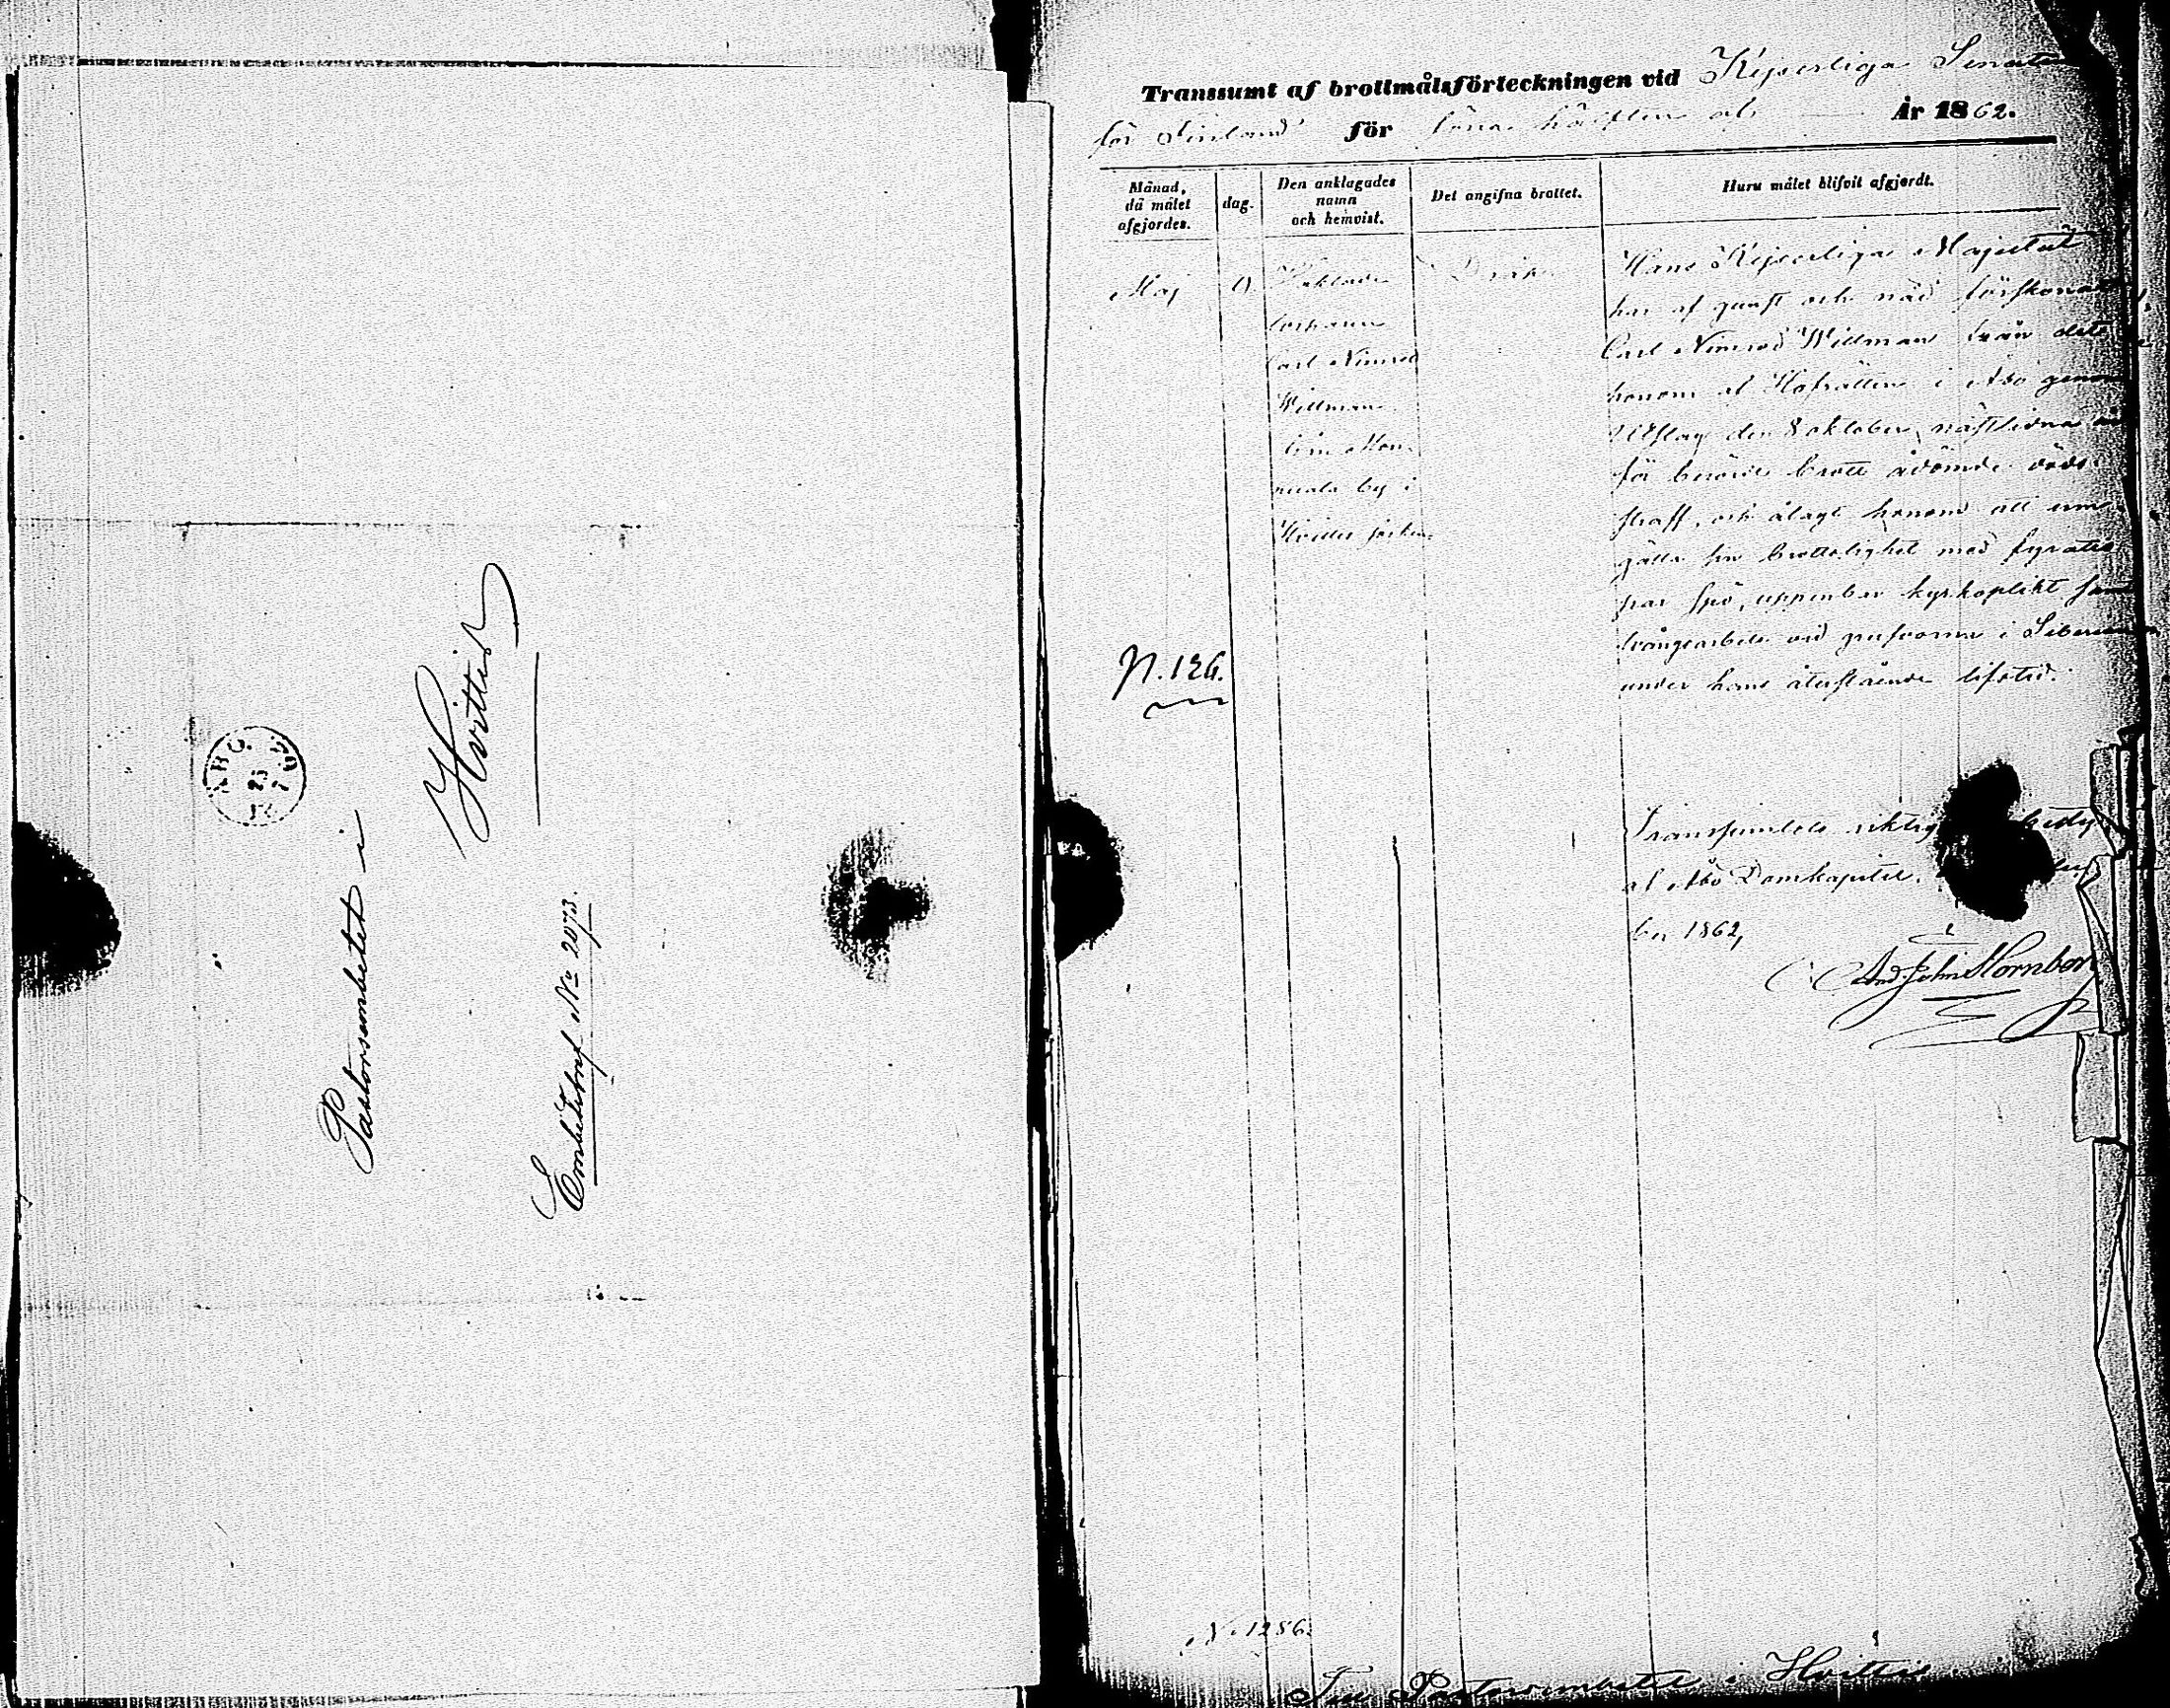 Pastorsembetet i
Hvittis
Embetsbref No 2073.
ÅBO.
Transsumt af brottmålsförteckningen vid Kejserliga Senaten
för Finland för förra hälften af År 1862.
Månad, då målet afgjordes.
dag.
Den anklagades namn och hemvist.
Det angifna brottet.
Huru målet blifvit afgjordt.
Maj
Carl Nimrod
Willman
by i
Hvittis socken
Dråp
Hans Kejserliga Majestät
har af gunst och nåd förskonat
Carl Nimrod Willman från det
honom af Hofrätten i Åbo genom
Utslag den 8 oktober nästlidna år
för berörde brott ådömde döds
straff, och ålagt honom att um
gälla sin brottslighet med fyratio
par spö, uppenbar kyrkoplikt samt
tvångsarbete vid grufvorna i Siberien
under hans återstående lifstid.
N. 126.
Transsumtets riktighet betygar
af Åbo Domkapitel.
ber 1862,
And. John Hornborg
No 1286.
Till Pastorsembetet i Hvittis